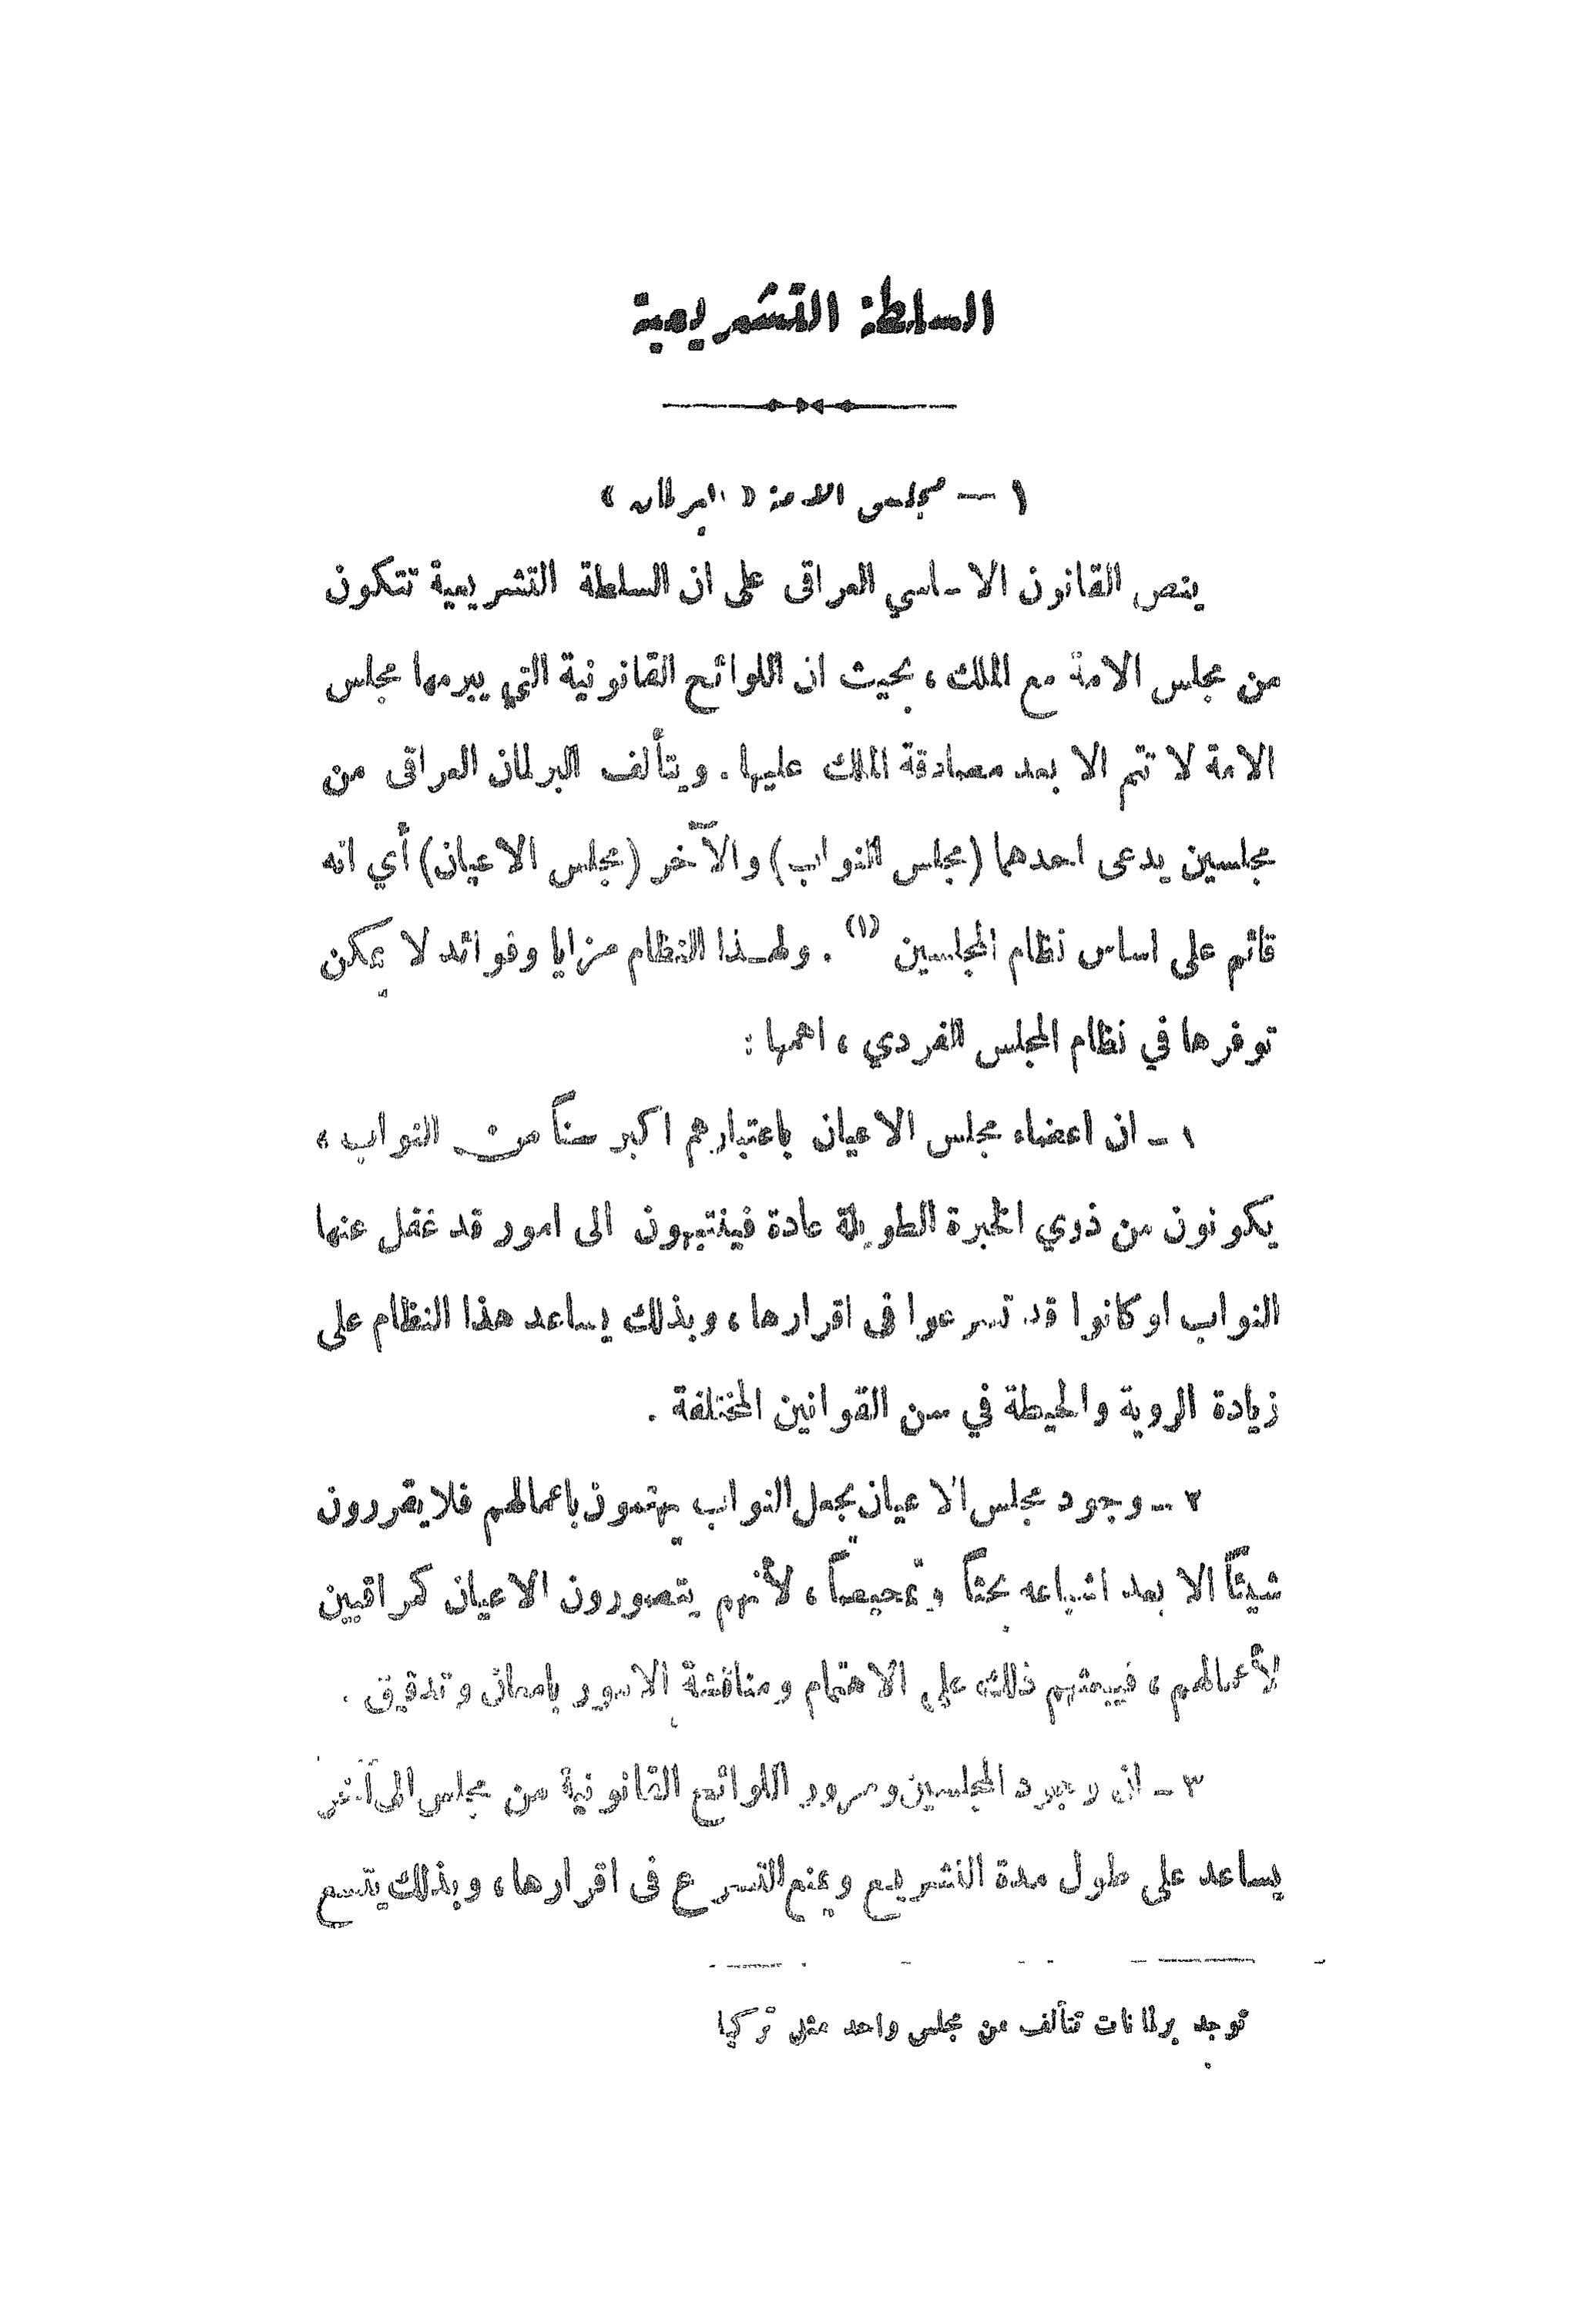 السلطة التشريعية
١ — مجلس الامة « البرلمان »
ينص القانون الاساسي العراقى على ان السلطة التشريعية تتكون
من مجلس الامة مع الملك ، بحيث ان اللوائح القانونية التي يبرمها مجلس
الامة لا تتم الا بعد مصادقة الملك عليها . ويتألف البرلمان العراقى من
مجلسين يدعى احدهما (مجلس النواب) والآخر (مجلس الاعيان) أي انه
قائم على اساس نظام المجلسين (١) . ولهـذا النظام مزايا وفوائد لا يمكن
توفرها في نظام المجلس الفردي ، اهمها :
١ ـ ان اعضاء مجلس الاعيان باعتبارهم اكبر سناً من النواب ،
يكونون من ذوي الخبرة الطويلة عادة فينتبهون الى امور قد غفل عنها
النواب او كانوا قد تسرعوا فى اقرارها ، وبذلك يساعد هذا النظام على
زيادة الروية والحيطة في سن القوانين المختلفة .
٢ ـ وجود مجلس الاعيان يجعل النواب يهتمون باعمالهم فلا يقررون
شيئاً الا بعد اشباعه بحثاً وتمحيصاً ، لأنهم يتصورون الاعيان كمراقبين
لأعمالهم ، فيبعثهم ذلك على الاهتمام ومناقشة الامور بامعان وتدقيق .
٣ ـ ان وجود المجلسين ومرور اللوائح القانونية من مجلس الى آخر
يساعد على طول مدة التشريع ويمنع التسرع فى اقرارها ، وبذلك يتسع
توجد برلمانات تتألف من مجلس واحد مثل تركيا